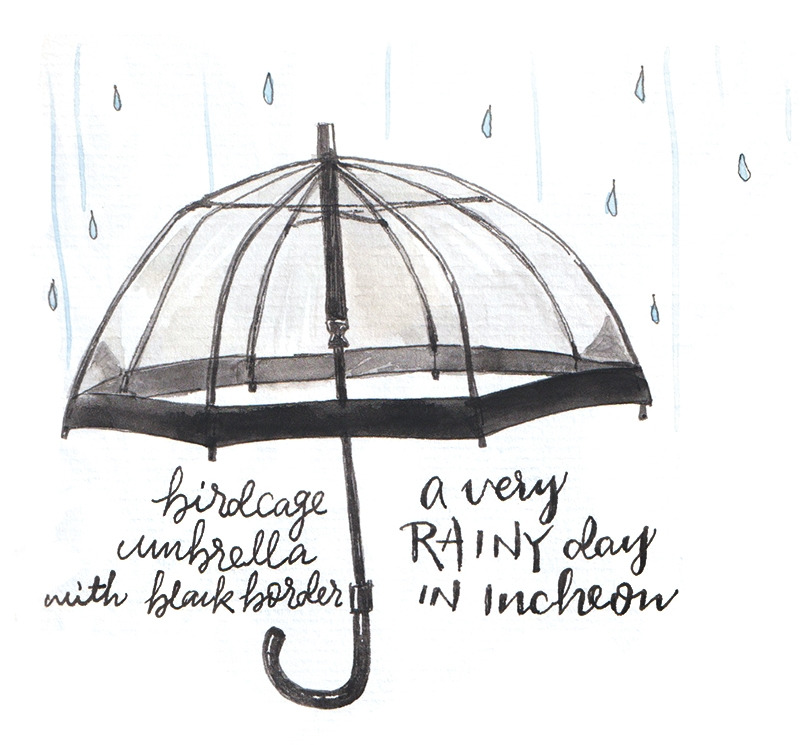 birdcage
umbrella
with black border
a very
RAINY day
IN Incheon